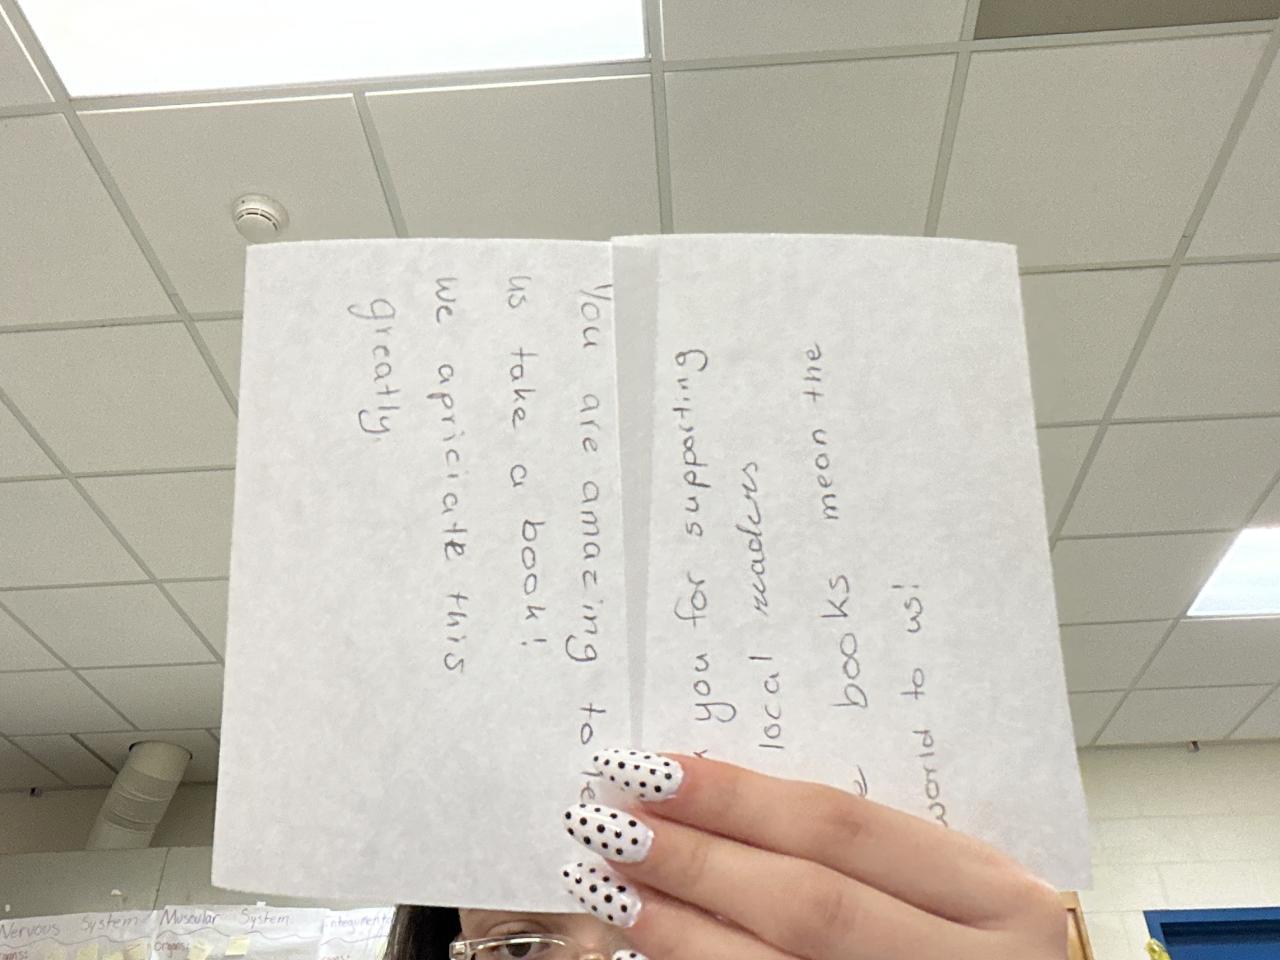 You are amazing to
us take a book!
we apriciate this
greatly.
you for supporting
local readers
books mean the
world to us!
Nervous System
Muscular System
Organs: